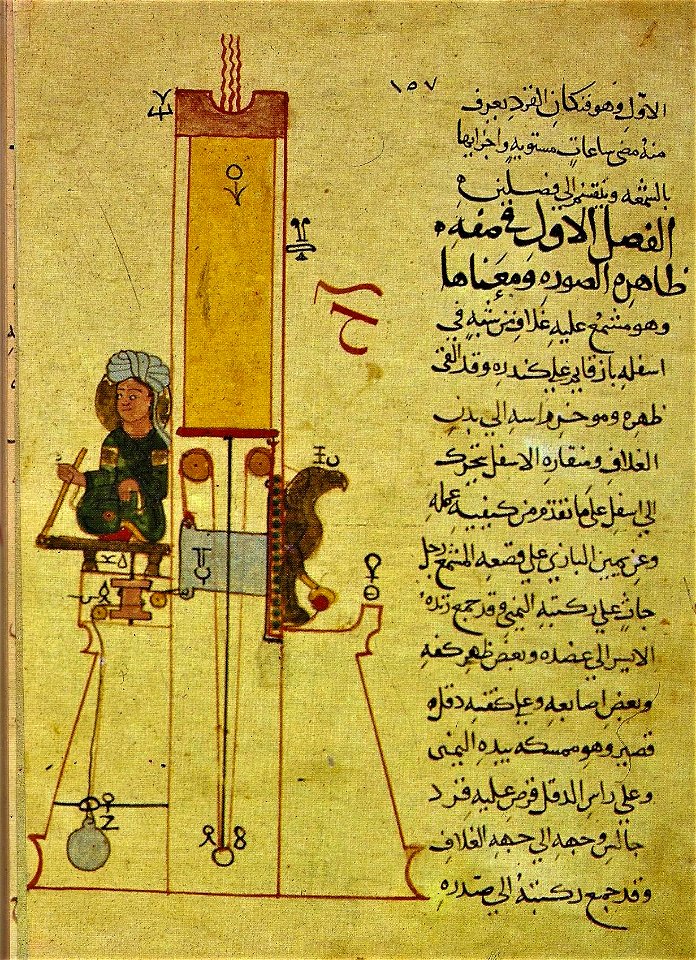 ١٥٧
الاول وهو فنكان القرد يعرف
منه مضى ساعات مستوية واجزايها
بالشمعه وينقسم الى فصلين
الفصل الاول في صفه
ظاهره الصوره ومعناها
وهو مشمع عليه غلاف من شبه في
اسفله باز قايم على كندره وقد القى
ظهره وموخر راسه الى بدن
الغلاف ومنقاره الاسفل يتحرك
الى اسفل على ما تقدم من كيفية عمله
وعن يمين البازي على قصعه المشمع رجل
جاث على ركبته اليمنى وقد جمع زنده
الايسر الى عضده وبعض ظهر كفه
وبعض اصابعه وعلى كتفه دقل
قصير وهو ممسكه بيده اليمنى
وعلى راس الدقل قرص عليه قرد
جالس وجهه الى جهه الغلاف
وقد جمع ركبته الى صدره